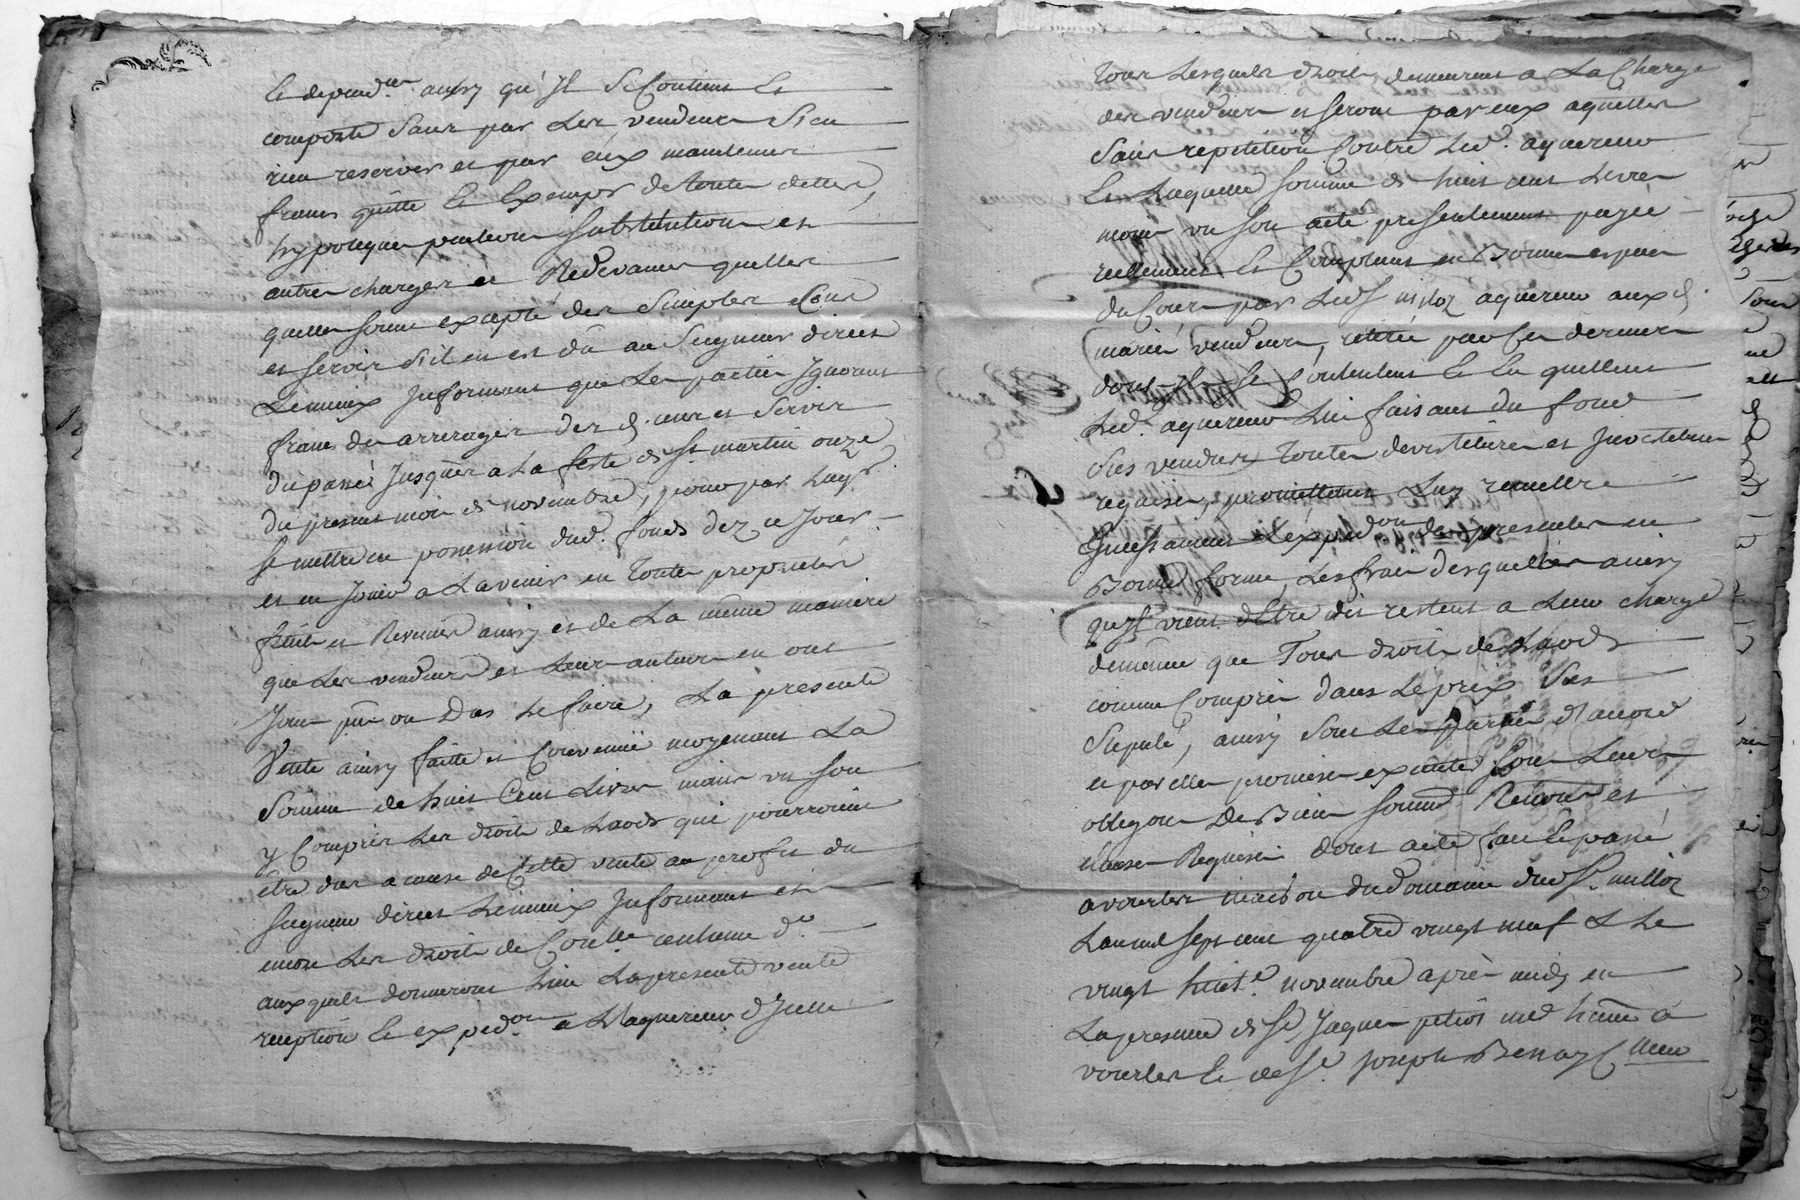 et dépend.ces ainsy qu'Il se Contient et
comporte sans par Les vendeurs S'en
rien reserver et par eux maintenir
franc quitte et Exempt de toute dettes,
hypoteques pentions substitutions et
autres charges et Redevances quelles
quelles soient excepté des simples Cens
et servis s'il en est dû au Seigneur direct
Lemieux Informant que Les parties Ignorent
francs des arrerages des d. cens et servis
du passé Jusques a La feste de St martin onze
du present mois de novembre, pour par Luy
se mettre en possession dud. fonds dez ce Jour
et en Jouir a Lavenir en toute proprieté
fruits et Revenus ainsy et de La même maniere
que Les vendeurs et Leurs auteurs en ont
Joui pu ou Das Le faire, La presente
Vente ainsy faitte et Convenuë moyenant La
Somme de huit Cent Livres mains vu son
y Compris Les droits de Laods qui pourroient
être dus a cause de Cette vente au profit du
Seigneur direct Lemieux Informant et
encore Les droits de Con.lle centieme d.r
auxquels donneront Lieu La presente vente
reception et exped.on a L'aquereur d'Icelle
tous Lesquels droits demeurent a La Charge
des vendeurs et seront par eux aquittés
sans repetition Contre Led. aquereur
Et Laquelle somme de huit cent Livres
moins vu son acté presentement payée
reellement Et Comptant en Bonnes especes
du Cours par Led. S.r milloz aquereur aux d.
mariés vendeurs, retirée par Ces derniers
dont Il se Contentent Et En quittent
Led. aquereur Lui faisant du fond
Sus vendus toutes devestitures et Investitures
requises, promettant Luy remettre
Incessament L'exped.on des presentes en
Bonne forme, Les frais desquelles ainsy
qu'Il vient d'Etre dit restent a Leur charge
demême que Tous droits de Laods
comme Compris dans Le prix Sus
Stipulé, ainsy Sont Les parties d'accord
et par elles promis executer Sous Leurs
obligons De Biens soumis Renons et
clauses Requises dont acte fait et passé
a vourles maison du domaine dud. S.r milloz
L'an mil sept cent quatre vingt neuf & Le
vingt huit.e novembre après midy en
La presence de S.r Jaques petiot me
vourles Et de S.r Joseph Benay